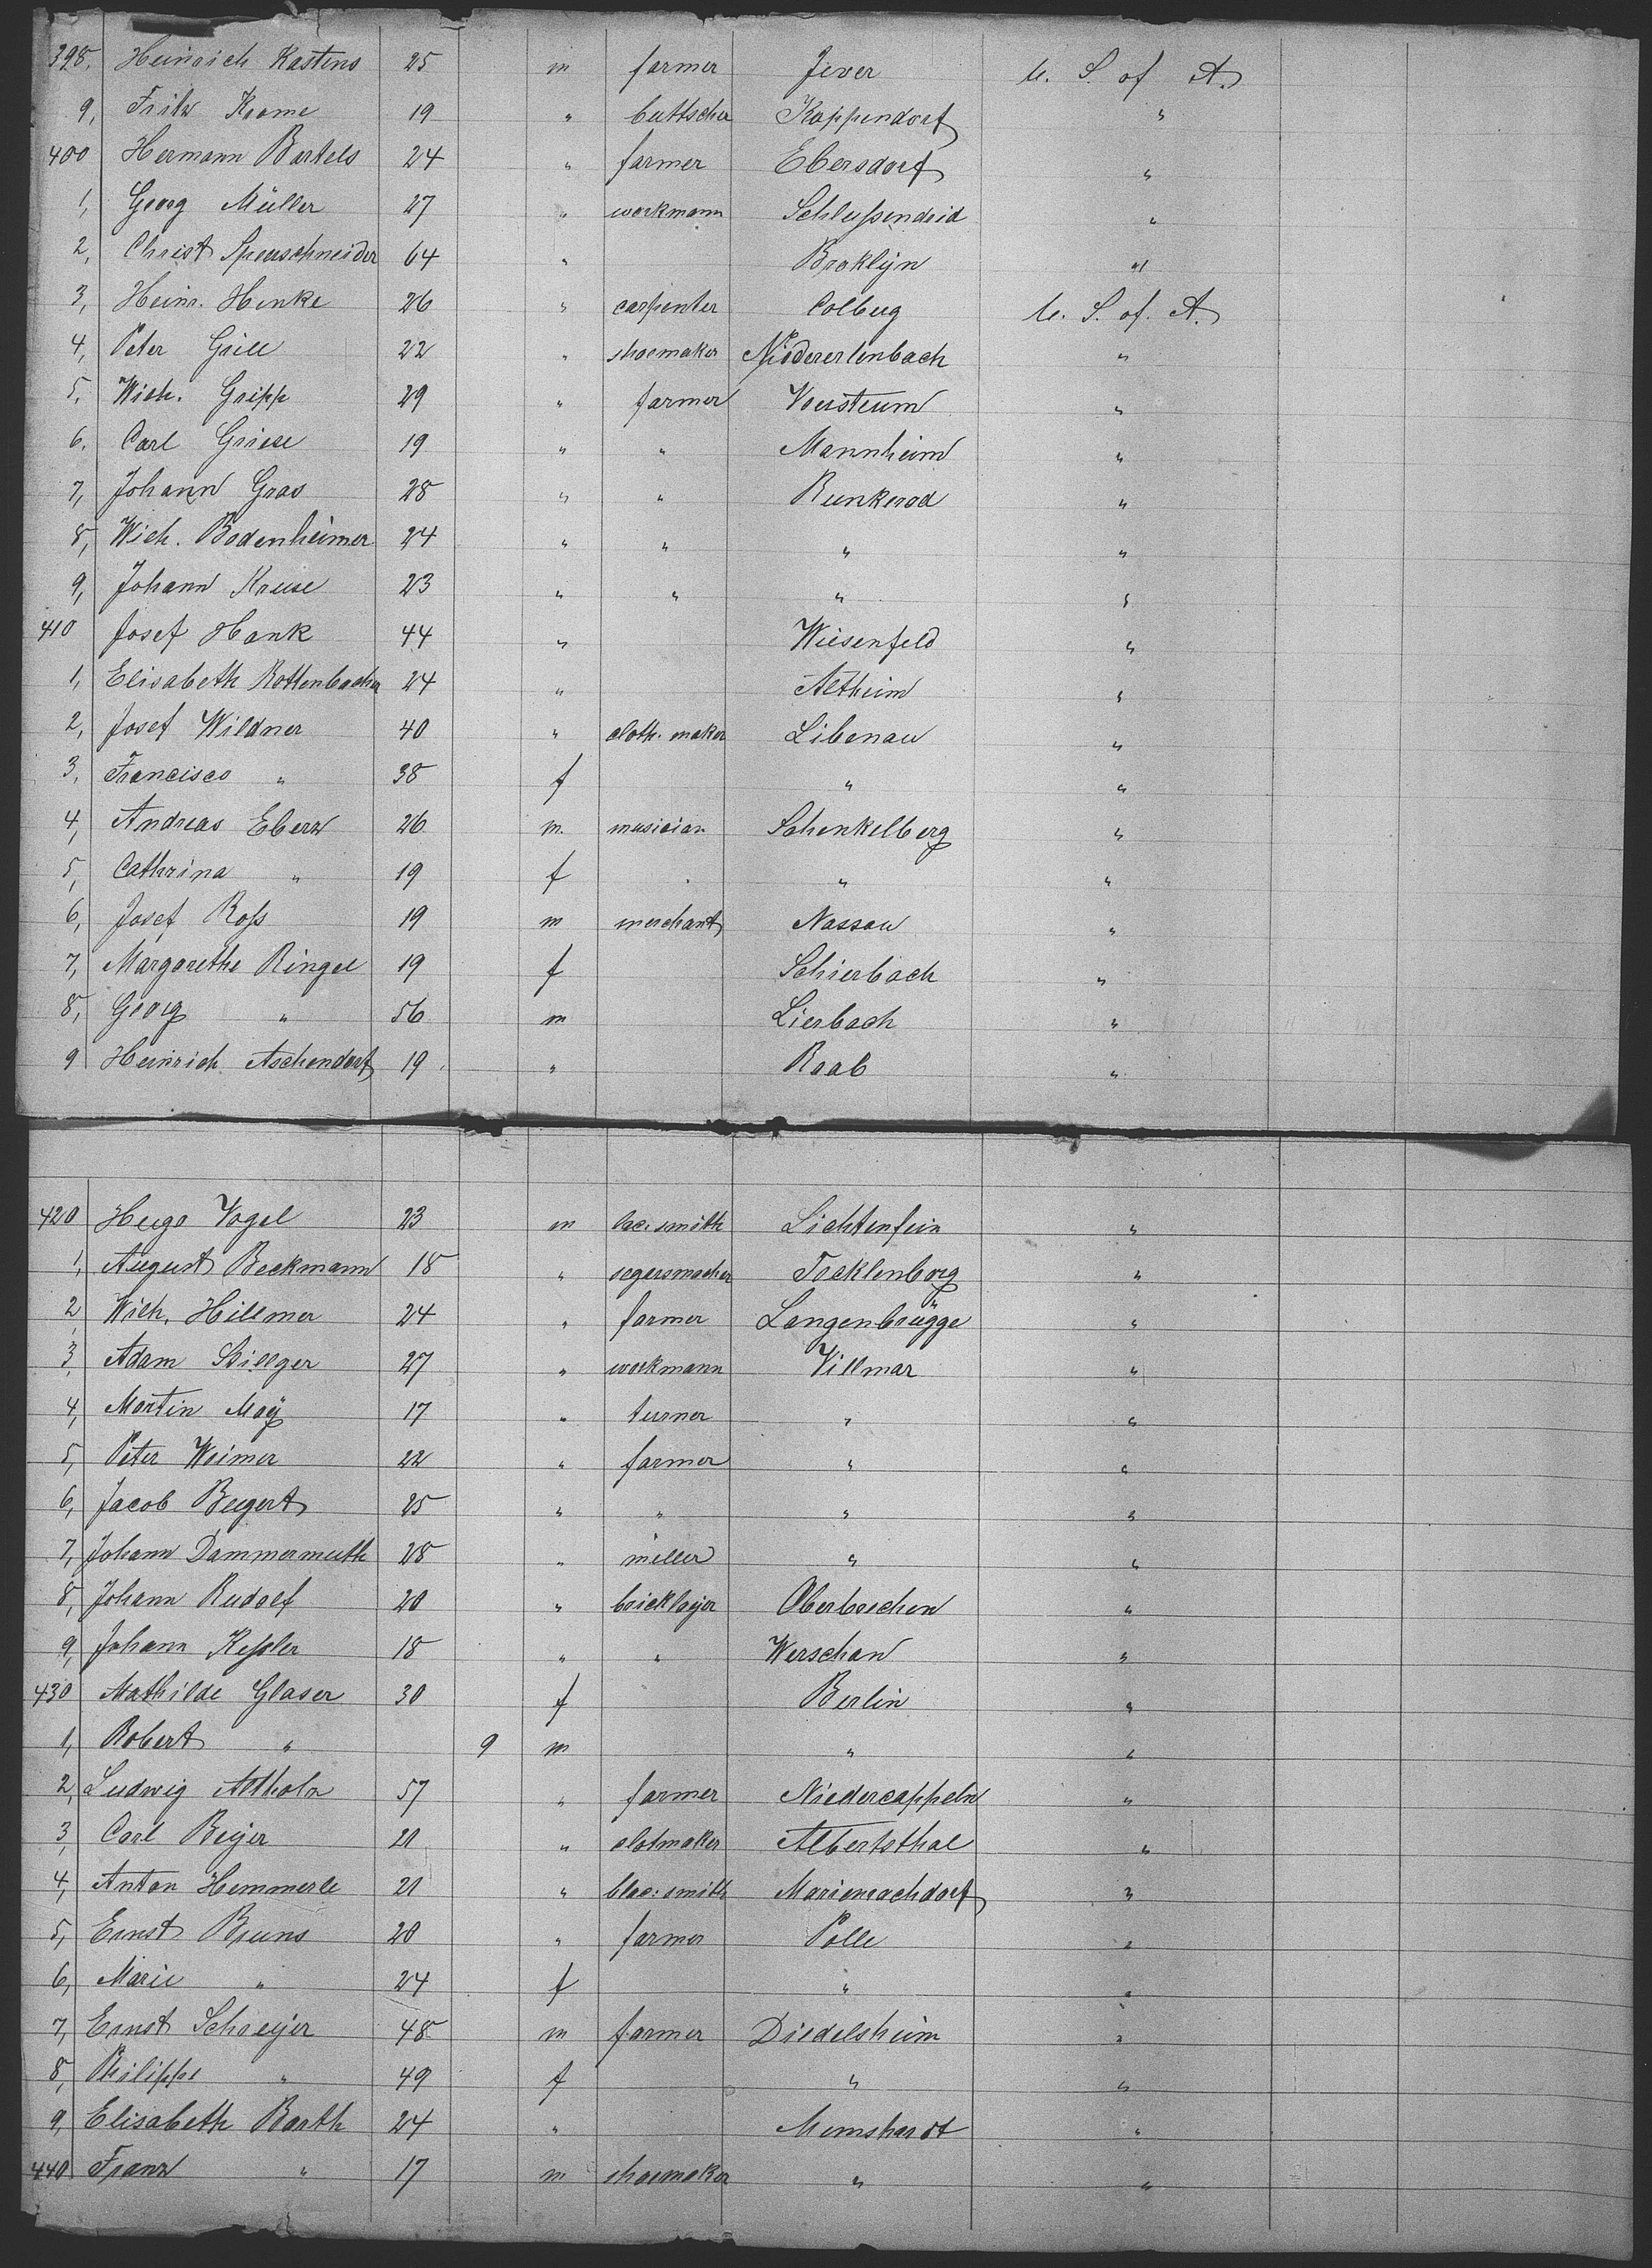 398. Heinrich Kastens 25 m farmer Jever U. S. of A.
9, Fritz Krome 19 " buttscher Koppendorf "
400 Hermann Bartels 24 " farmer Ebersdorf "
1, Georg Müller 27 " workmann "
2, Christ Spreuschneider 64 " Broklijn "
3, Heinr. Henke 26 " carpenter Colberg U. S. of. A.
4, Peter Grill 22 " shoemaker Niedererlenbach "
5, Wilh. Gripp 29 " farmer "
6. Carl Griese 19 " " Mannheim "
7, Johann Gras 28 " " Runkerod "
8, Wilh. Bodenheimer 24 " " " "
9, Johann Kruse 23 " " " "
410 Josef Hank 44 " Wiesenfeld "
1, Elisabeth Rottenbacher 24 " Altheim "
2, Josef Wildner 40 " cloth. maker Libenau "
3, Francisco " 38 f " "
4, Andreas Eberz 26 m. musician Schenkelberg "
5, Cathrina " 19 f " "
6, Josef Roſs 19 m merchant Nassau "
7, Margarethe Ringel 19 f Schierbach "
8, Georg " 56 m Lierbach "
9 Heinrich Aschendorf 19 " Raab "
420 Hugo Vogel 23 m smith "
1, August Beckmann 18 " segarsmacher Tecklenborg "
2, Wilh. Hillmer 24 " farmer Langenbrügge "
3, Adam Stillger 27 " workmann Villmar "
4, Martin Maÿ 17 " turner " "
5, Peter Weimer 22 " farmer " "
6, Jacob Beegert 25 " " " "
7, Johann Dammermuth 28 " miller " "
8, Johann Rudolf 20 " bricklayer Oberbrechen "
9, Johann Keſsler 18 " " Werschau "
430 Mathilde Glaser 30 f Berlin "
1, Robert " 9 m " "
2, Ludwig Altholz 57 " farmer Niedercappeln "
3, Carl Beijer 21 " clotmaker Albertsthal "
4, Anton Hemmerle 21 " blac: smith Marienrachdorf "
5, Ernst Bruns 20 " farmer Polle "
6, Marie " 24 f " "
7, Ernst Schreijer 48 m farmer Diedelsheim "
8, Philippe " 49 f " "
9, Elisabeth Barth 24 " Mimshardt "
440 Franz " 17 m shoemaker " "